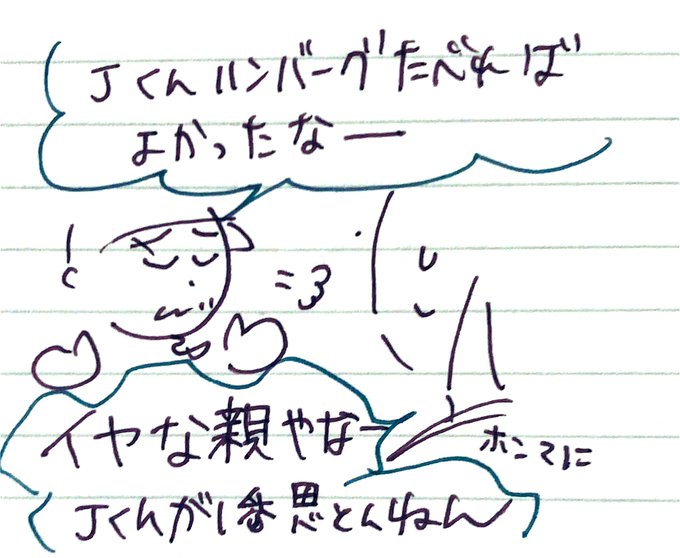 Jくんハンバーグたべれば
よかったなー
イヤな親やなー
ホンマに
Jくんが1番思とんねん